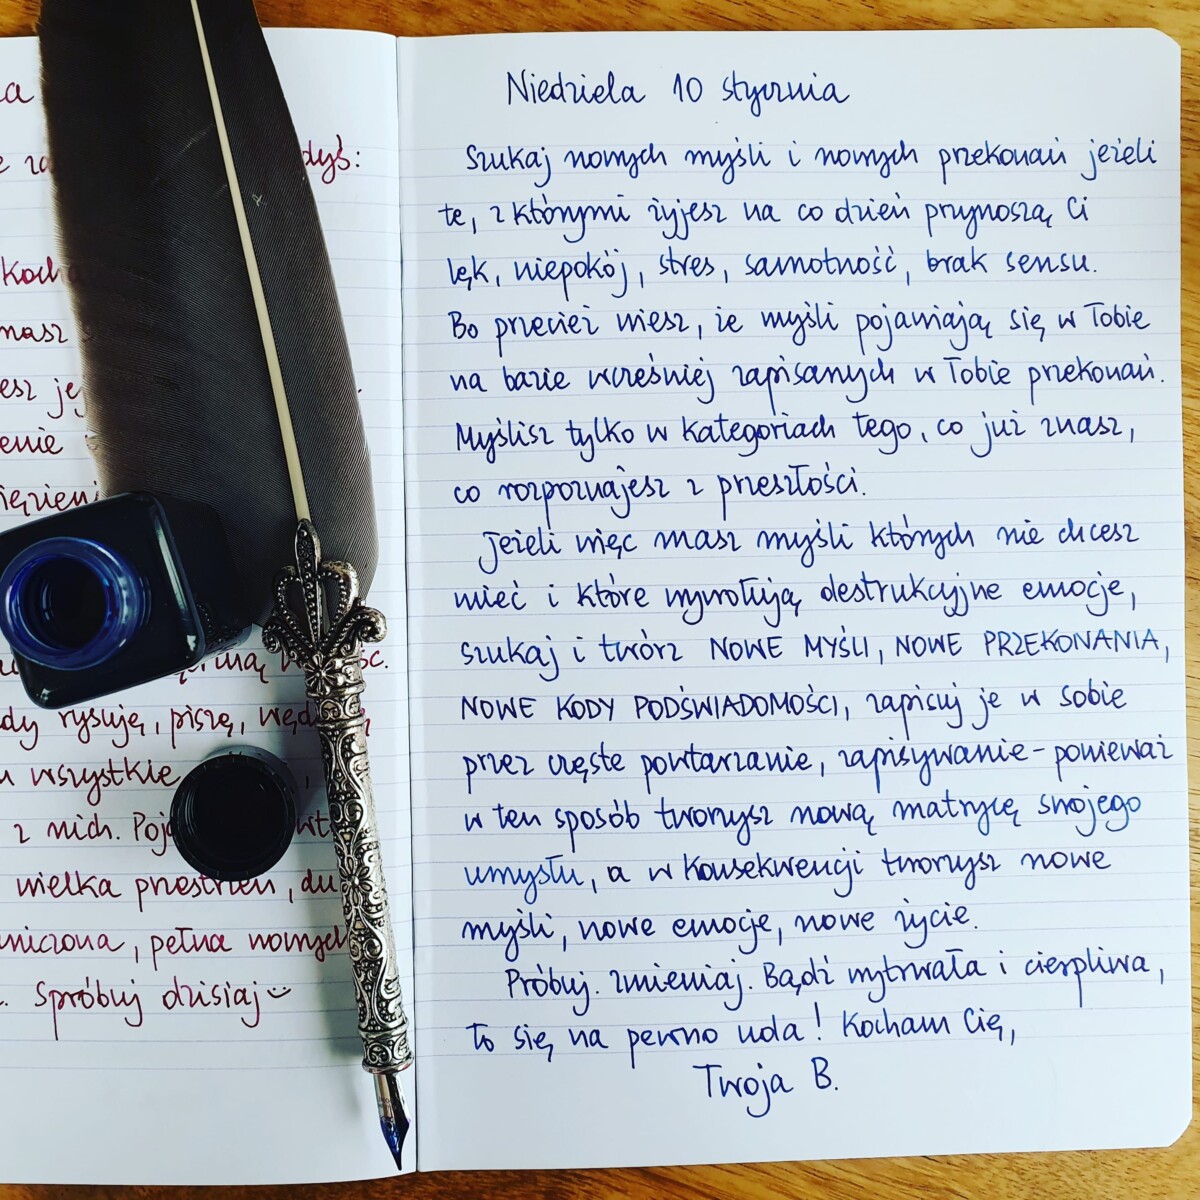 dyś:
Koch
masz
esz
enie
dy rysuję, piszę,
wszystkie
z nich.
wielka przestrzeń, du
niczona, pełna nowych
Spróbuj dzisiaj
Niedziela 10 stycznia
Szukaj nowych myśli i nowych przekonań jeżeli
te, z którymi żyjesz na co dzień przynoszą Ci
lęk, niepokój, stres, samotność, brak sensu.
Bo przecież wiesz, że myśli pojawiają się w Tobie
na bazie wcześniej zapisanych w Tobie przekonań.
Myślisz tylko w kategoriach tego, co już znasz,
co rozpoznajesz z przeszłości.
Jeżeli więc masz myśli których nie chcesz
mieć i które wywołują destrukcyjne emocje,
szukaj i twórz NOWE MYŚLI, NOWE PRZEKONANIA,
NOWE KODY PODŚWIADOMOŚCI, zapisuj je w sobie
przez częste powtarzanie, zapisywanie - ponieważ
w ten sposób tworzysz nową matrycę swojego
umysłu, a w konsekwencji tworzysz nowe
myśli, nowe emocje, nowe życie.
Próbuj. Zmieniaj. Bądź wytrwała i cierpliwa,
to się na pewno uda! Kocham Cię,
Twoja B.